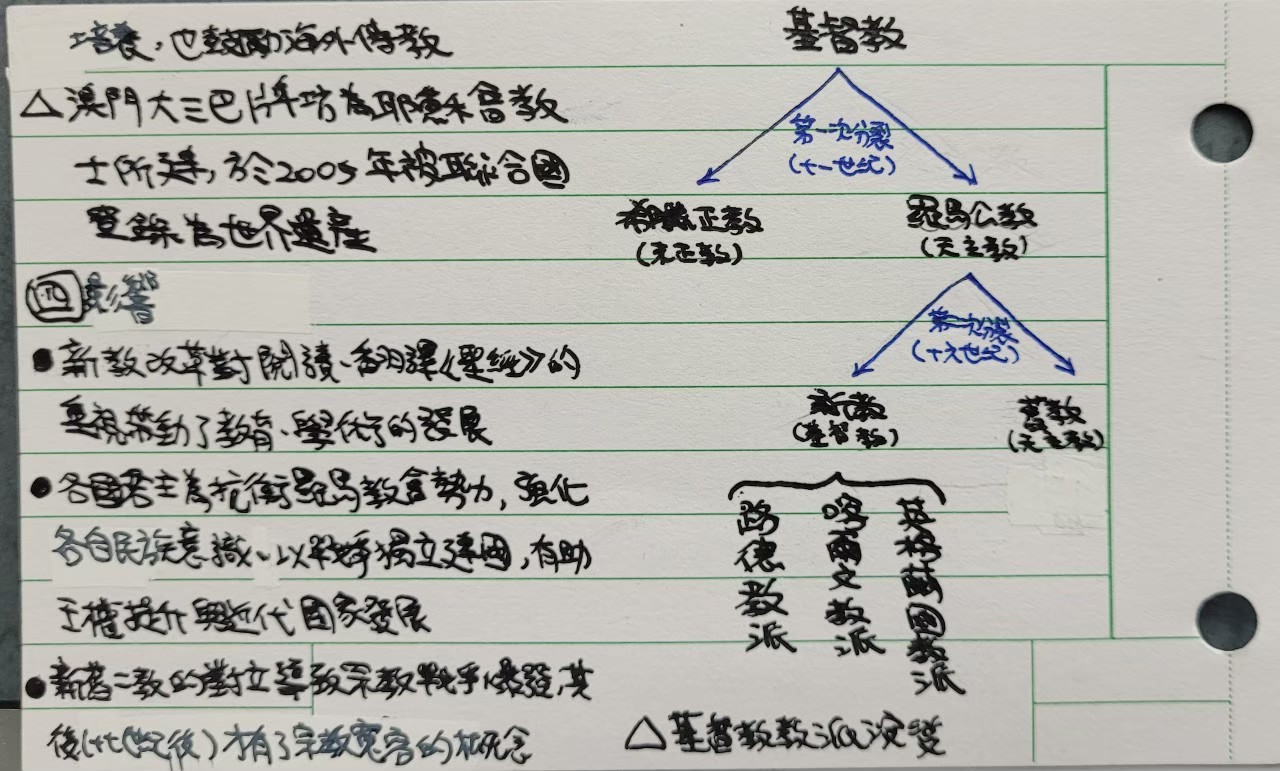 培養，也鼓勵海外傳教
△澳門大三巴牌坊為耶穌會教
士所建，於2005年被聯合國
登錄為世界遺產
四影響
●新教改革對閱讀、翻譯《聖經》的
重視帶動了教育、學術的發展
●各國君主為抗衡羅馬教會勢力，強化
各自民族意識、以戰爭獨立建國，有助
王權提升與近代國家發展
●新舊二教的對立導致宗教戰爭爆發，其
後(十七世紀後)才有了宗教寬容的概念
基督教
第一次分裂
(十一世紀)
希臘正教
(東正教)
羅馬公教
(天主教)
第二次分裂
(十六世紀)
新教
(基督教)
舊教
(天主教)
路德教派
喀爾文教派
英格蘭國教派
△基督教教派演變